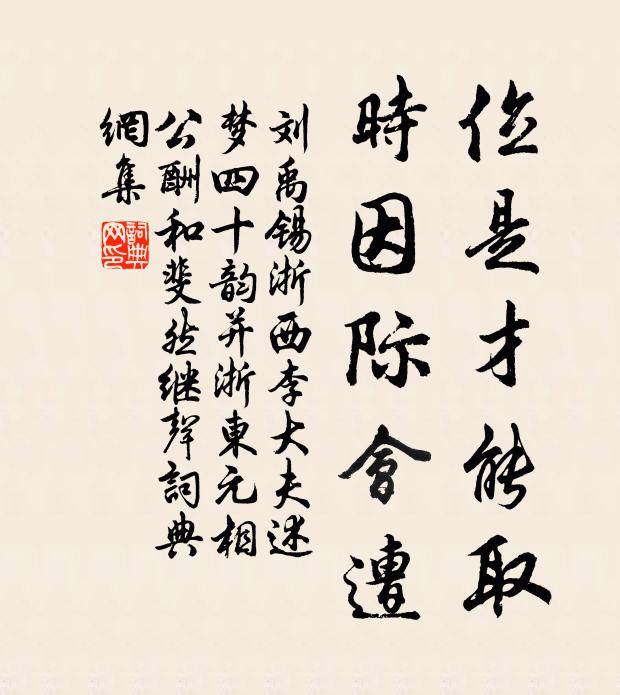 位是才能取
時因际會遭
刘禹锡浙西李大夫述
梦四十韵并浙東元相
公酬和斐然继聲詞典
網集
詞典
网印